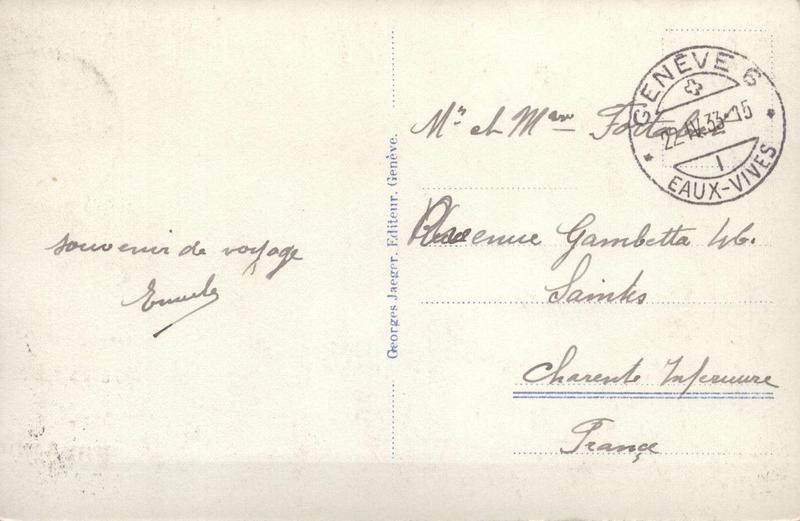 souvenir de voyage
Georges Jaeger, Editeur, Genève.
GENÈVE 6
22.IV.33-15
1
EAUX-VIVES
Mr et Mme
Avenue Gambetta 46.
Saintes
Charente Inferieure
France